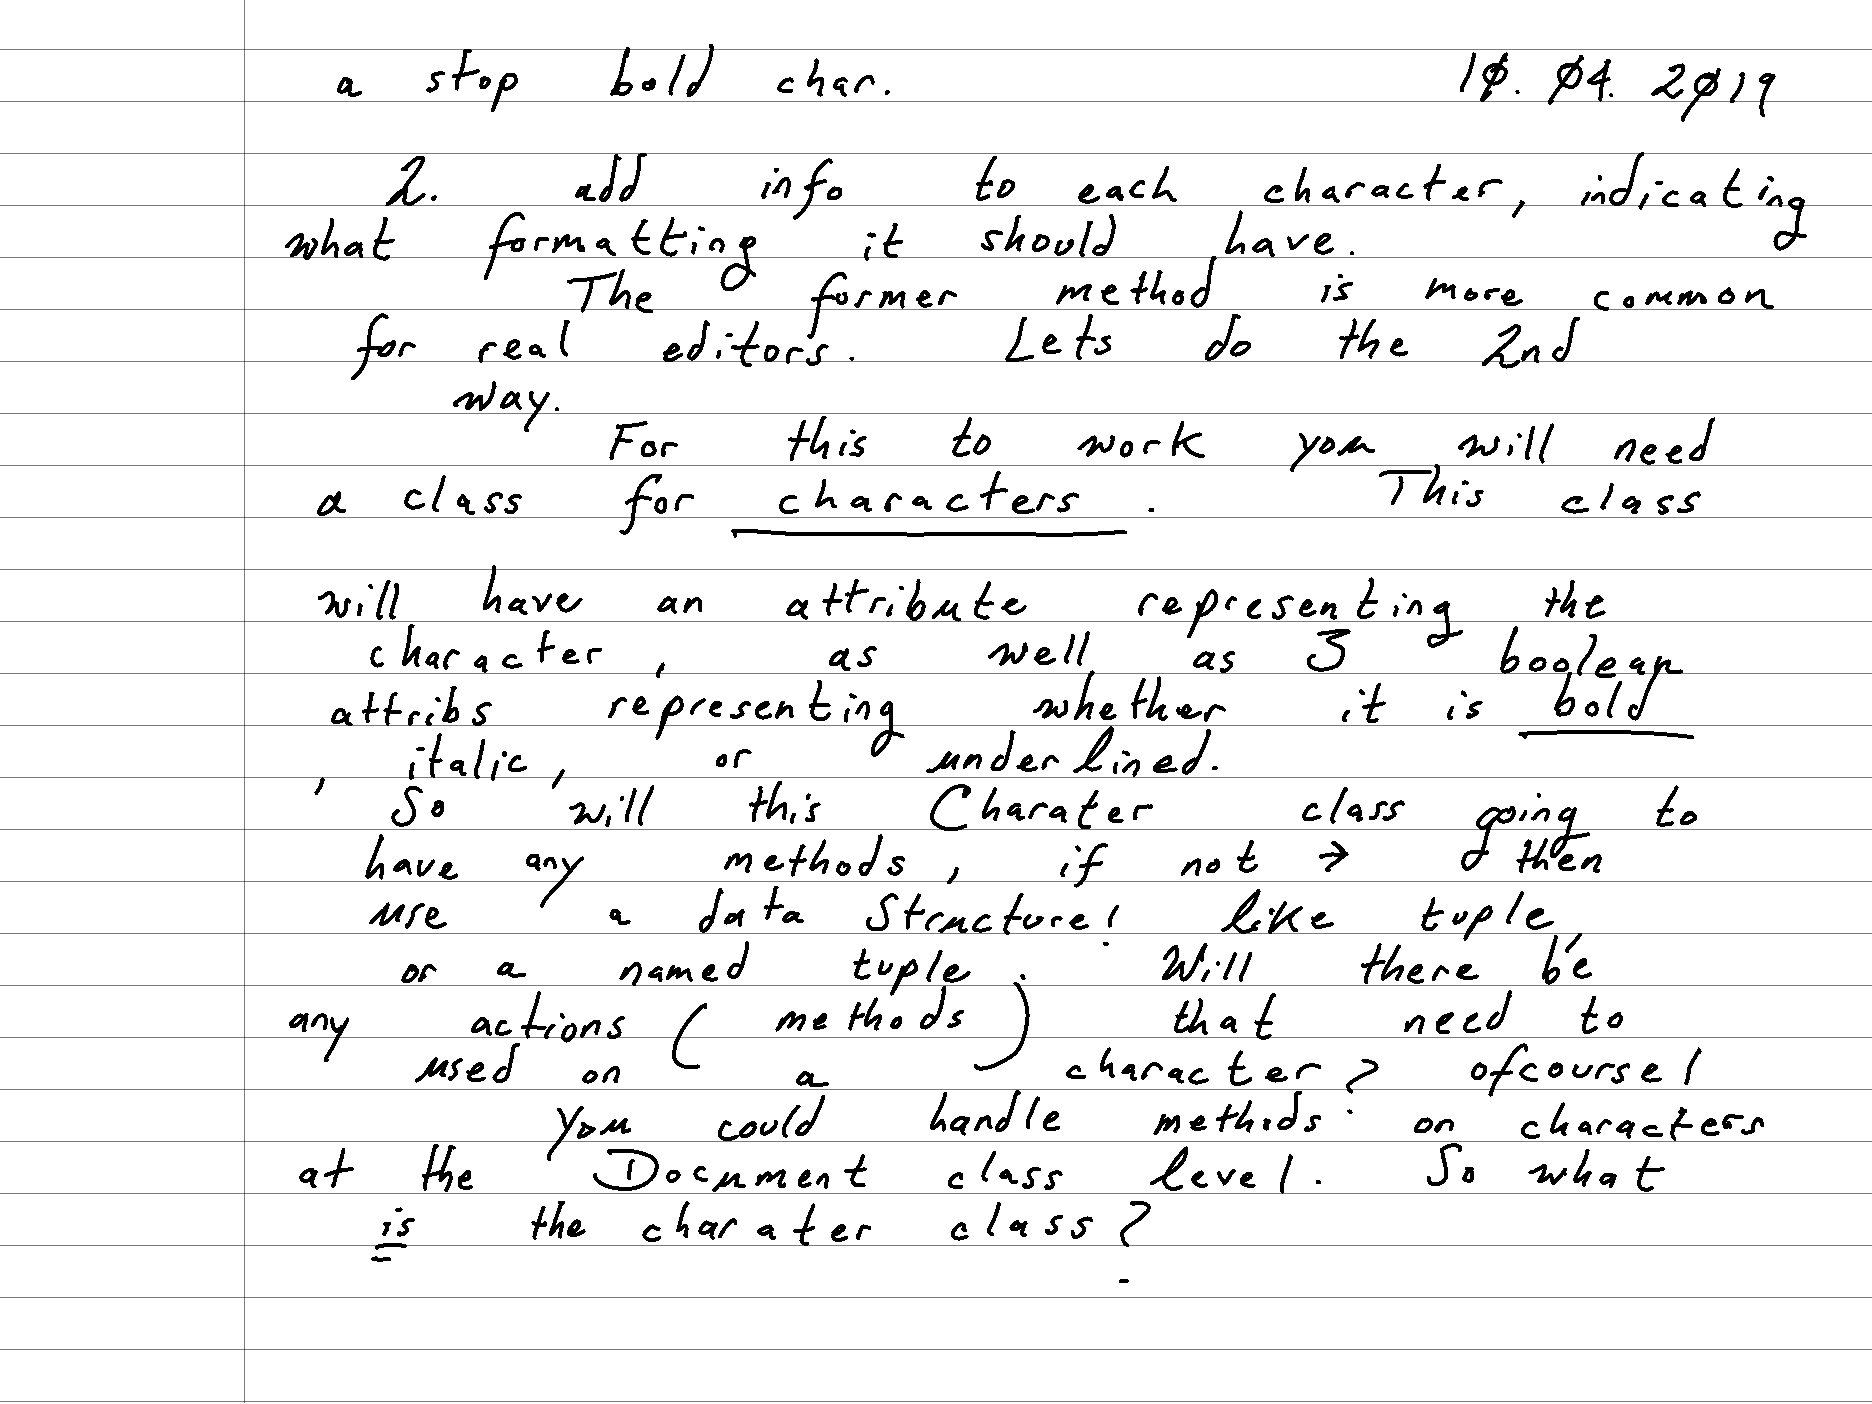 a stop bold char. 10. 04. 2019
2. add info to each character, indicating
what formatting it should have.
The former method is more common
for real editors. Lets do the 2nd
way.
For this to work you will need
a class for characters. This class
will have an attribute representing the
character, as well as 3 boolean
attribs representing whether it is bold
, italic, or underlined.
So will this Charater class going to
have any methods, if not → then
use a data Structure! like tuple,
or a named tuple. Will there be
any actions (methods) that need to
used on a character? ofcourse!
You could handle methods on characters
at the Document class level. So what
is the charater class?